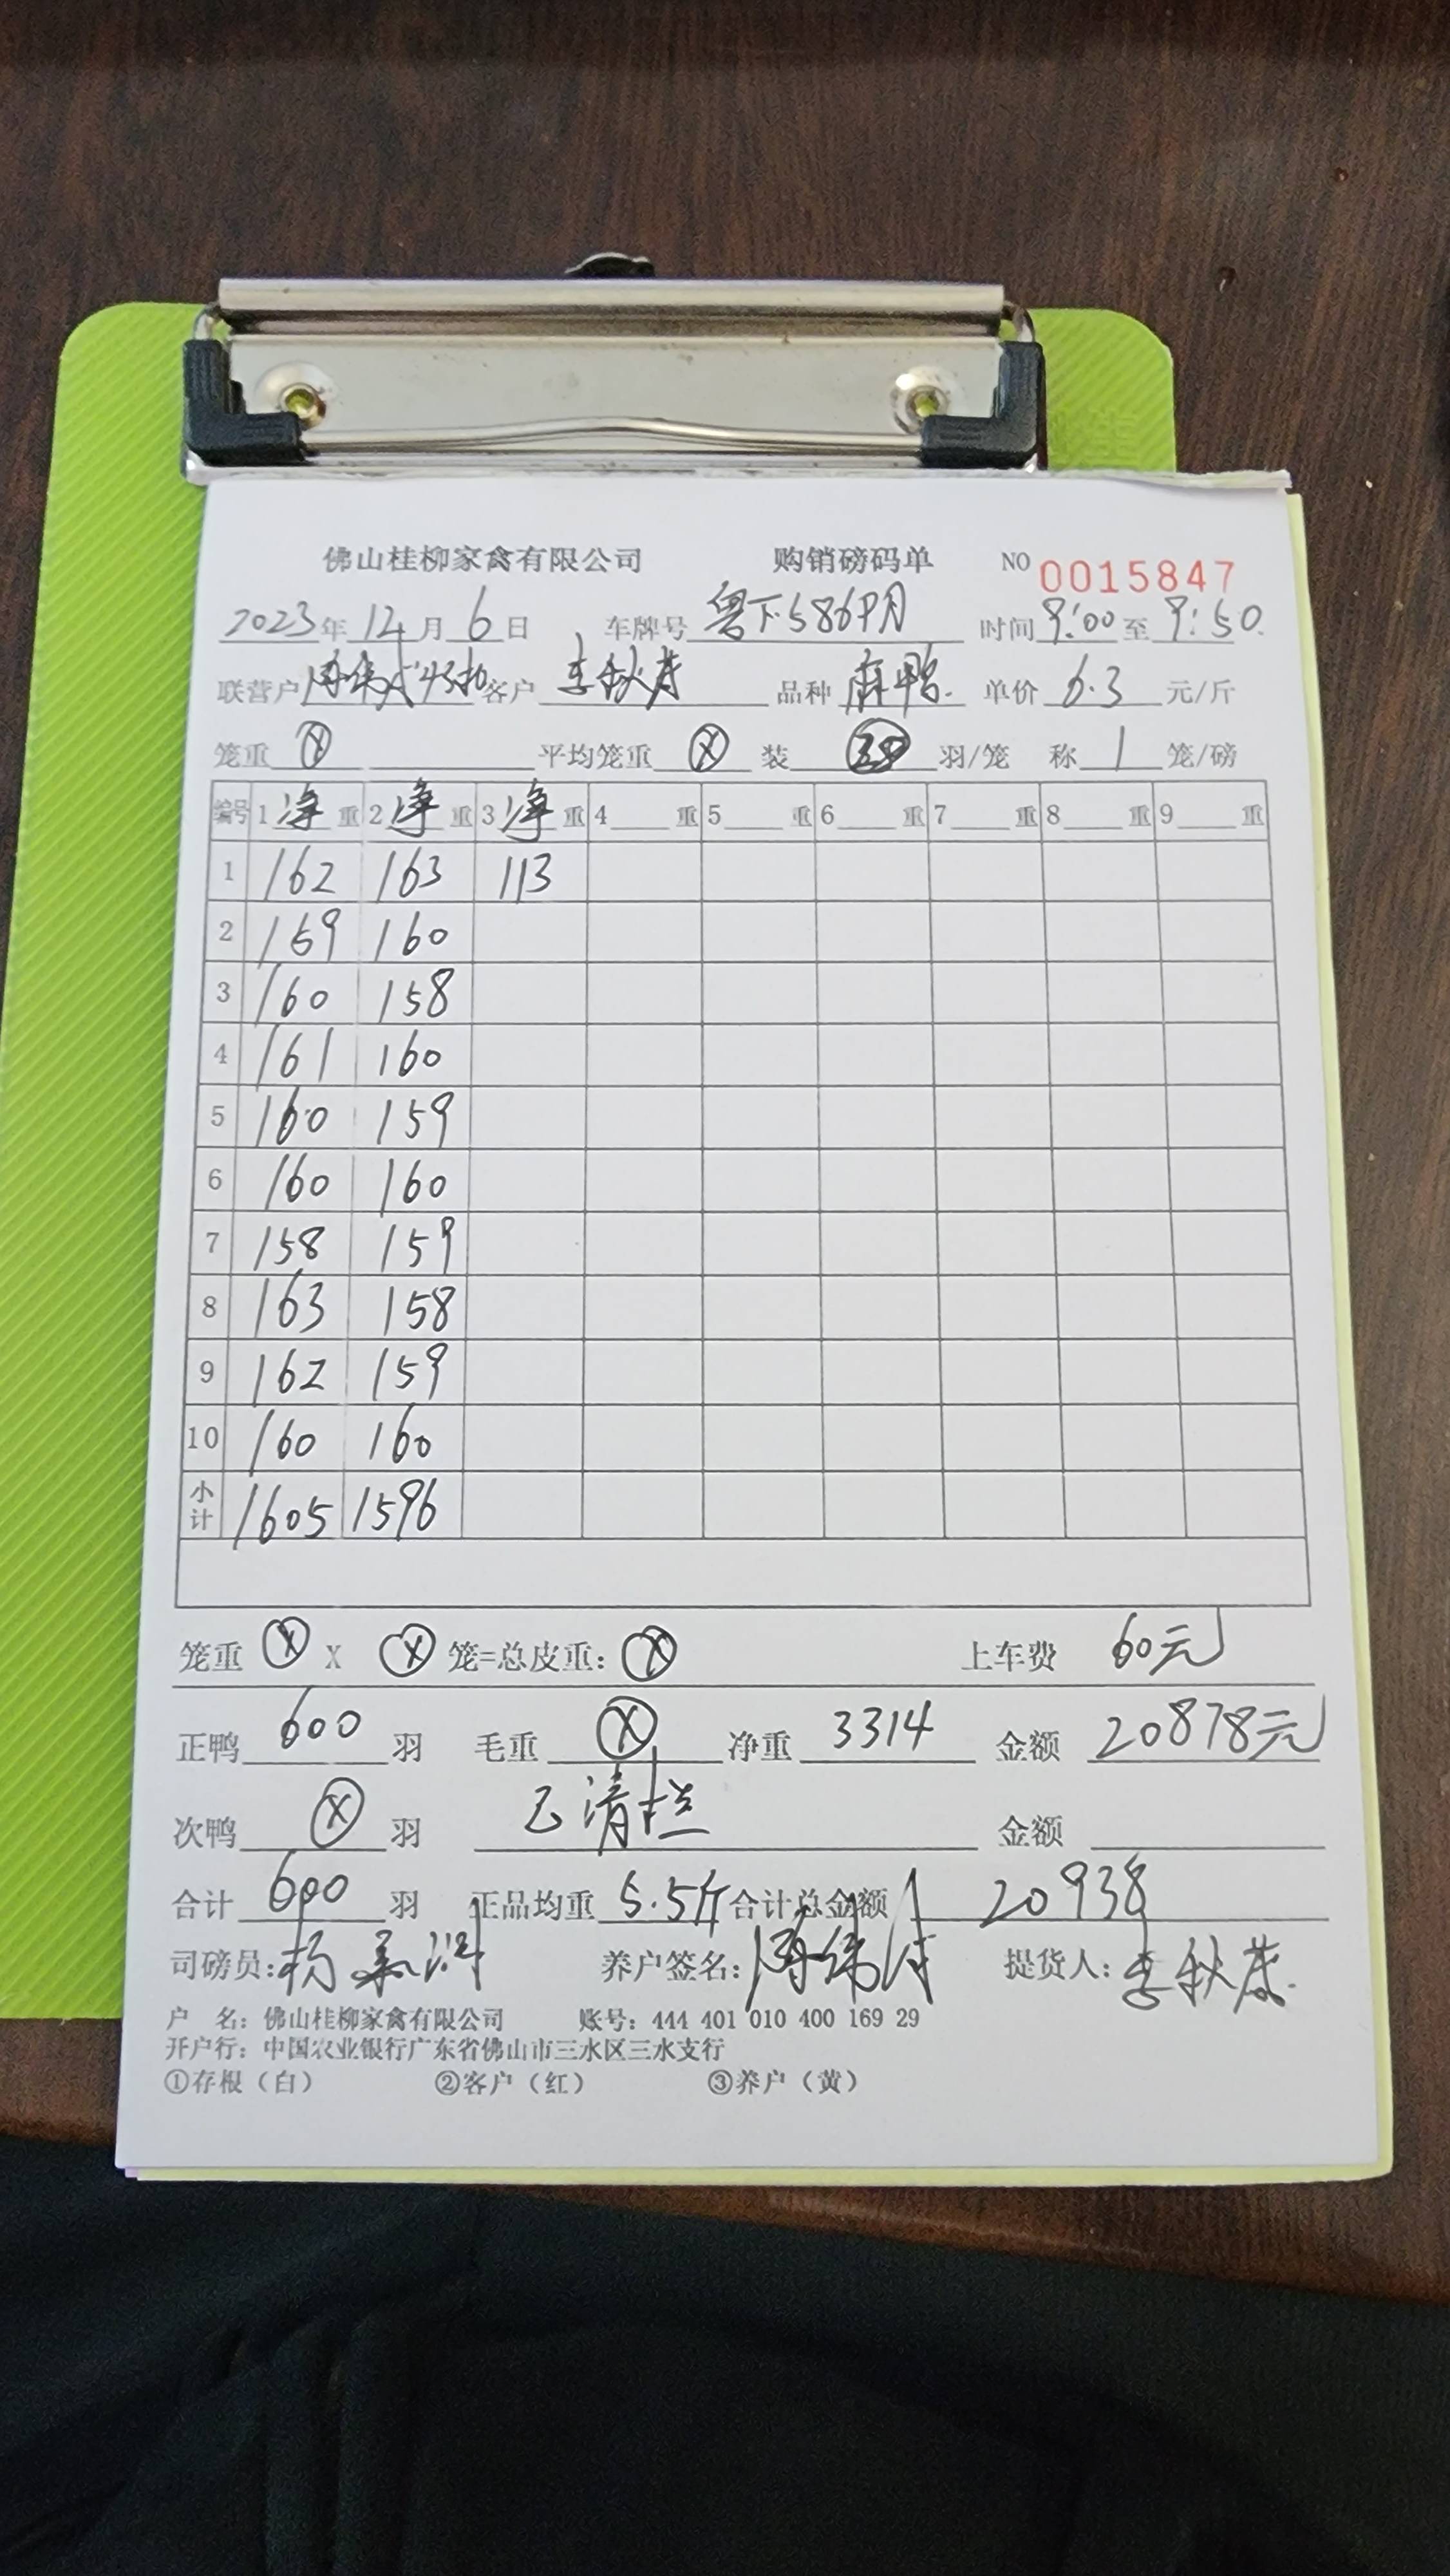 佛山桂柳家禽有限公司 购销磅码单 NO 0015847
2023年12月6日 车牌号 时间9:00至9:50
联营户 客户李秋 品种麻鸭 单价6.3元/斤
笼重Ⓧ 平均笼重Ⓧ 装 羽/笼 称1笼/磅
编号 1净重 2净重 3净重 4重 5重 6重 7重 8重 9重
1 162 163 113
2 159 160
3 160 158
4 161 160
5 160 159
6 160 160
7 158 159
8 163 158
9 162 159
10 160 160
小计 1605 1596
笼重Ⓧ X Ⓧ笼=总皮重:Ⓧ 上车费 60元
正鸭600羽 毛重Ⓧ 净重3314 金额20878元
次鸭Ⓧ羽 已清栏 金额
合计600羽 正品均重5.5斤 合计总金额 20938
司磅员:杨 养户签名: 提货人:李秋
户 名: 佛山桂柳家禽有限公司 账号: 444 401 010 400 169 29
开户行: 中国农业银行广东省佛山市三水区三水支行
①存根(白) ②客户(红) ③养户(黄)